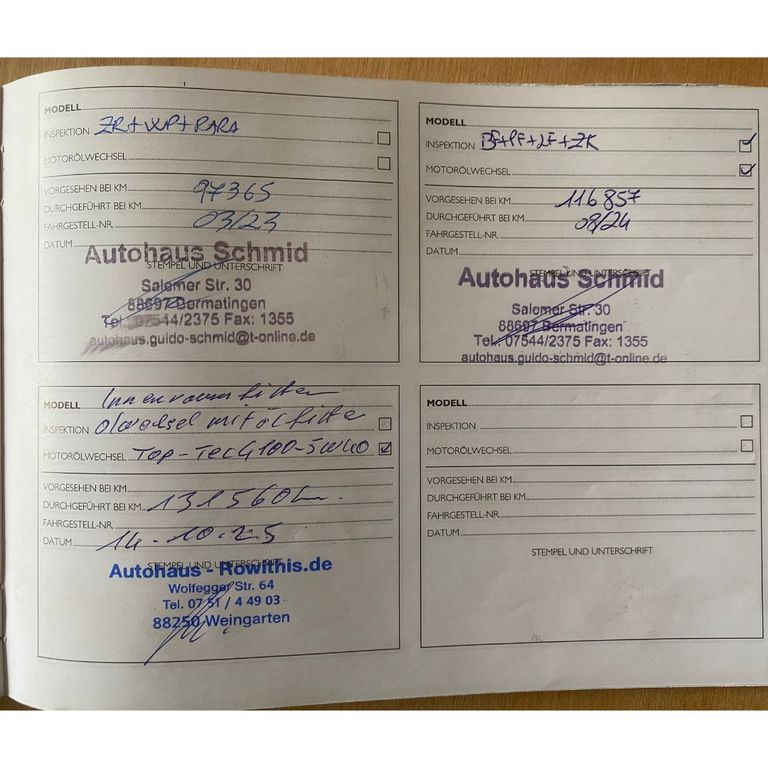 MODELL
INSPEKTION ZR+WP+PARA
MOTORÖLWECHSEL
VORGESEHEN BEI KM 97365
DURCHGEFÜHRT BEI KM
FAHRGESTELL-NR. 03/23
DATUM
STEMPEL UND UNTERSCHRIFT
Autohaus Schmid
Salemer Str. 30
88697 Bermatingen
Tel. 07544/2375 Fax: 1355
autohaus.guido-schmid@t-online.de
MODELL
INSPEKTION BF+PF+LF+ZK
MOTORÖLWECHSEL
VORGESEHEN BEI KM 116857
DURCHGEFÜHRT BEI KM
FAHRGESTELL-NR. 08/24
DATUM
STEMPEL UND UNTERSCHRIFT
Autohaus Schmid
Salemer Str. 30
88697 Bermatingen
Tel. 07544/2375 Fax: 1355
autohaus.guido-schmid@t-online.de
MODELL Innenraumfilter
INSPEKTION Ölwechsel mit Ölfilter
MOTORÖLWECHSEL Top-Tec 4100-5W40
VORGESEHEN BEI KM
DURCHGEFÜHRT BEI KM 131560km.
FAHRGESTELL-NR.
DATUM 14-10-25
STEMPEL UND UNTERSCHRIFT
Autohaus - Rowithis.de
Wolfegger Str. 64
Tel. 07 51 / 4 49 03
88250 Weingarten
MODELL
INSPEKTION
MOTORÖLWECHSEL
VORGESEHEN BEI KM
DURCHGEFÜHRT BEI KM
FAHRGESTELL-NR.
DATUM
STEMPEL UND UNTERSCHRIFT